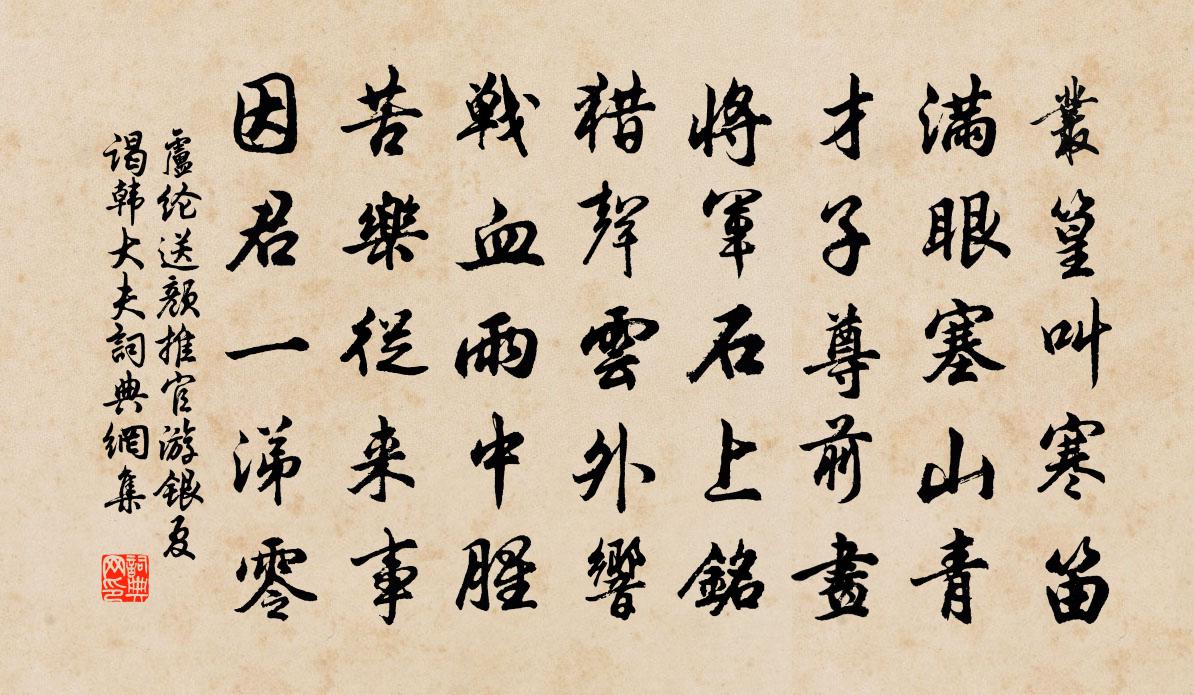 叢篁叫寒笛
滿眼塞山青
才子尊前畫
將軍石上銘
猎聲雲外響
戰血雨中腥
苦樂從来事
因君一涕零
盧纶送顏推官游銀夏
谒韩大夫詞典網集
詞典网印